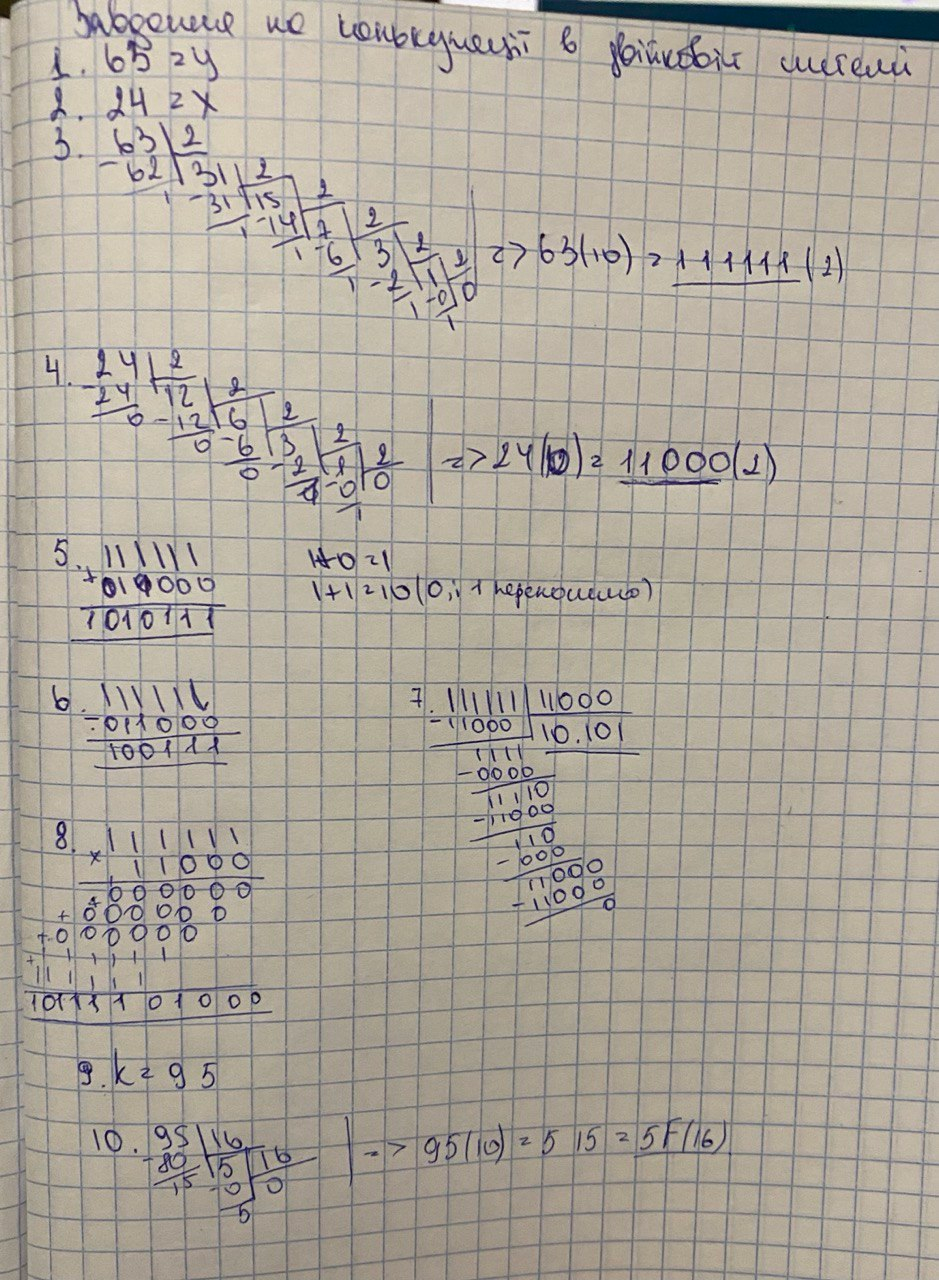 Завдання на конькунації в двійковій системі
1. 63 = y
2. 24 = x
3. 63 | 2
-62 | 31 | 2
1 -31 | 15 | 2
1 -14 | 7 | 2
1 -6 | 3 | 2
1 -2 | 1 | 2
1 -0 | 0
1
=> 63(10) = 111111(2)
4. 24 | 2
-24 | 12 | 2
0 -12 | 6 | 2
0 -6 | 3 | 2
0 -2 | 1 | 2
1 -0 | 0
1
=> 24(10) = 11000(2)
5. 111111 1+0=1
+011000 1+1=10 (0, і 1 переносимо)
1010111
6. 111111
-011000
100111
7. 111111 | 11000
-11000 | 10.101
1111
-0000
11110
-11000
110
-000
11000
-11000
0
8. 111111
x 11000
000000
+000000
+000000
+111111
+111111
10111101000
9. k = 95
10. 95 | 16
-80 | 5 | 16
15 -0 | 0
5
=> 95(10) = 5 15 = 5F(16)